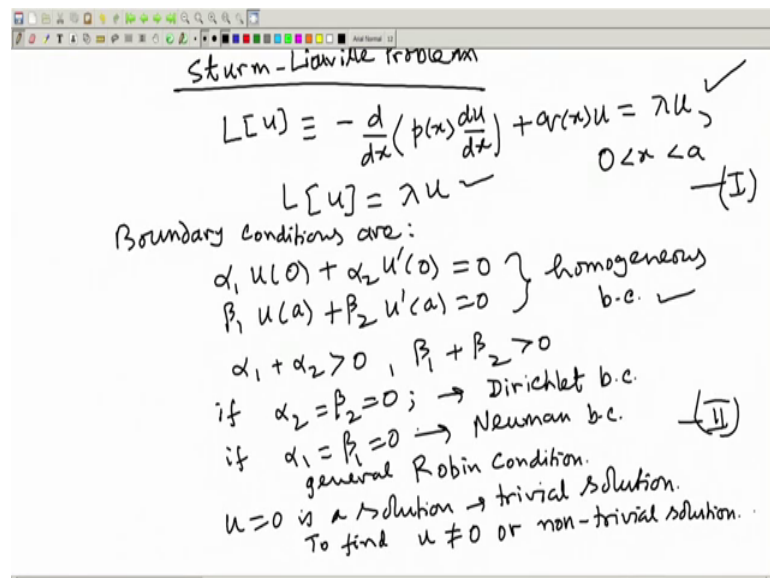 Sturm-Liouville Problem
L[u] ≡ - d/dx (p(x) du/dx) + q(x)u = λu,
0 < x < a
L[u] = λu
—(I)
Boundary Conditions are:
α₁ u(0) + α₂ u'(0) = 0
β₁ u(a) + β₂ u'(a) = 0
} homogeneous
b.c.
α₁ + α₂ > 0 , β₁ + β₂ > 0
if α₂ = β₂ = 0 ; → Dirichlet b.c.
if α₁ = β₁ = 0 → Neuman b.c.
—(II)
general Robin Condition.
u = 0 is a solution → trivial solution.
To find u ≠ 0 or non-trivial solution.